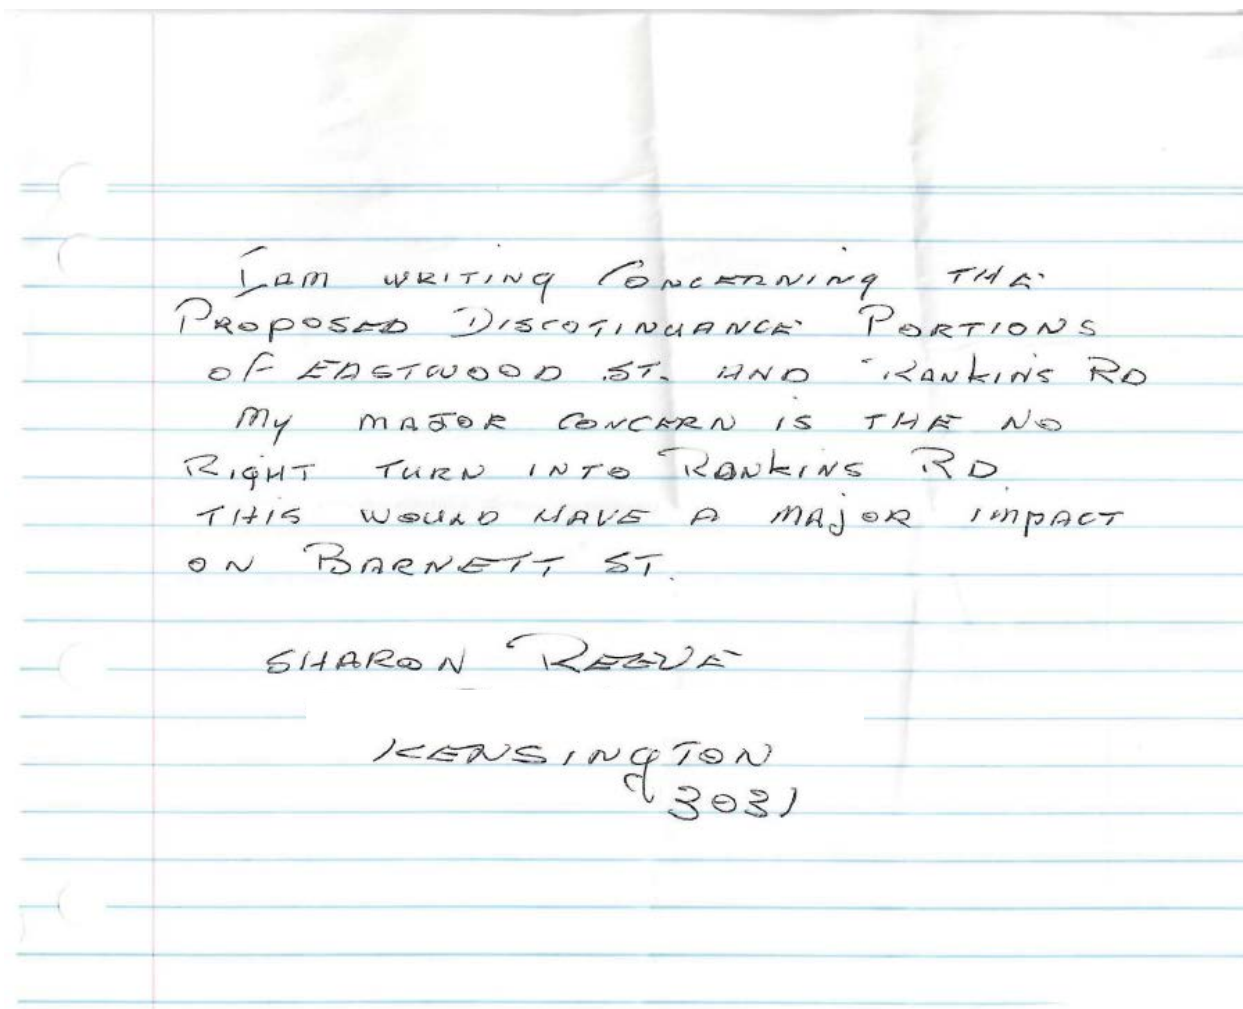 I am writing Concerning the
Proposed Discotinuance Portions
of Eastwood St. and Rankins Rd
My major concern is the no
Right turn into Rankins Rd.
This would have a major impact
on Barnett St.
Sharon Reeve
Kensington
3031